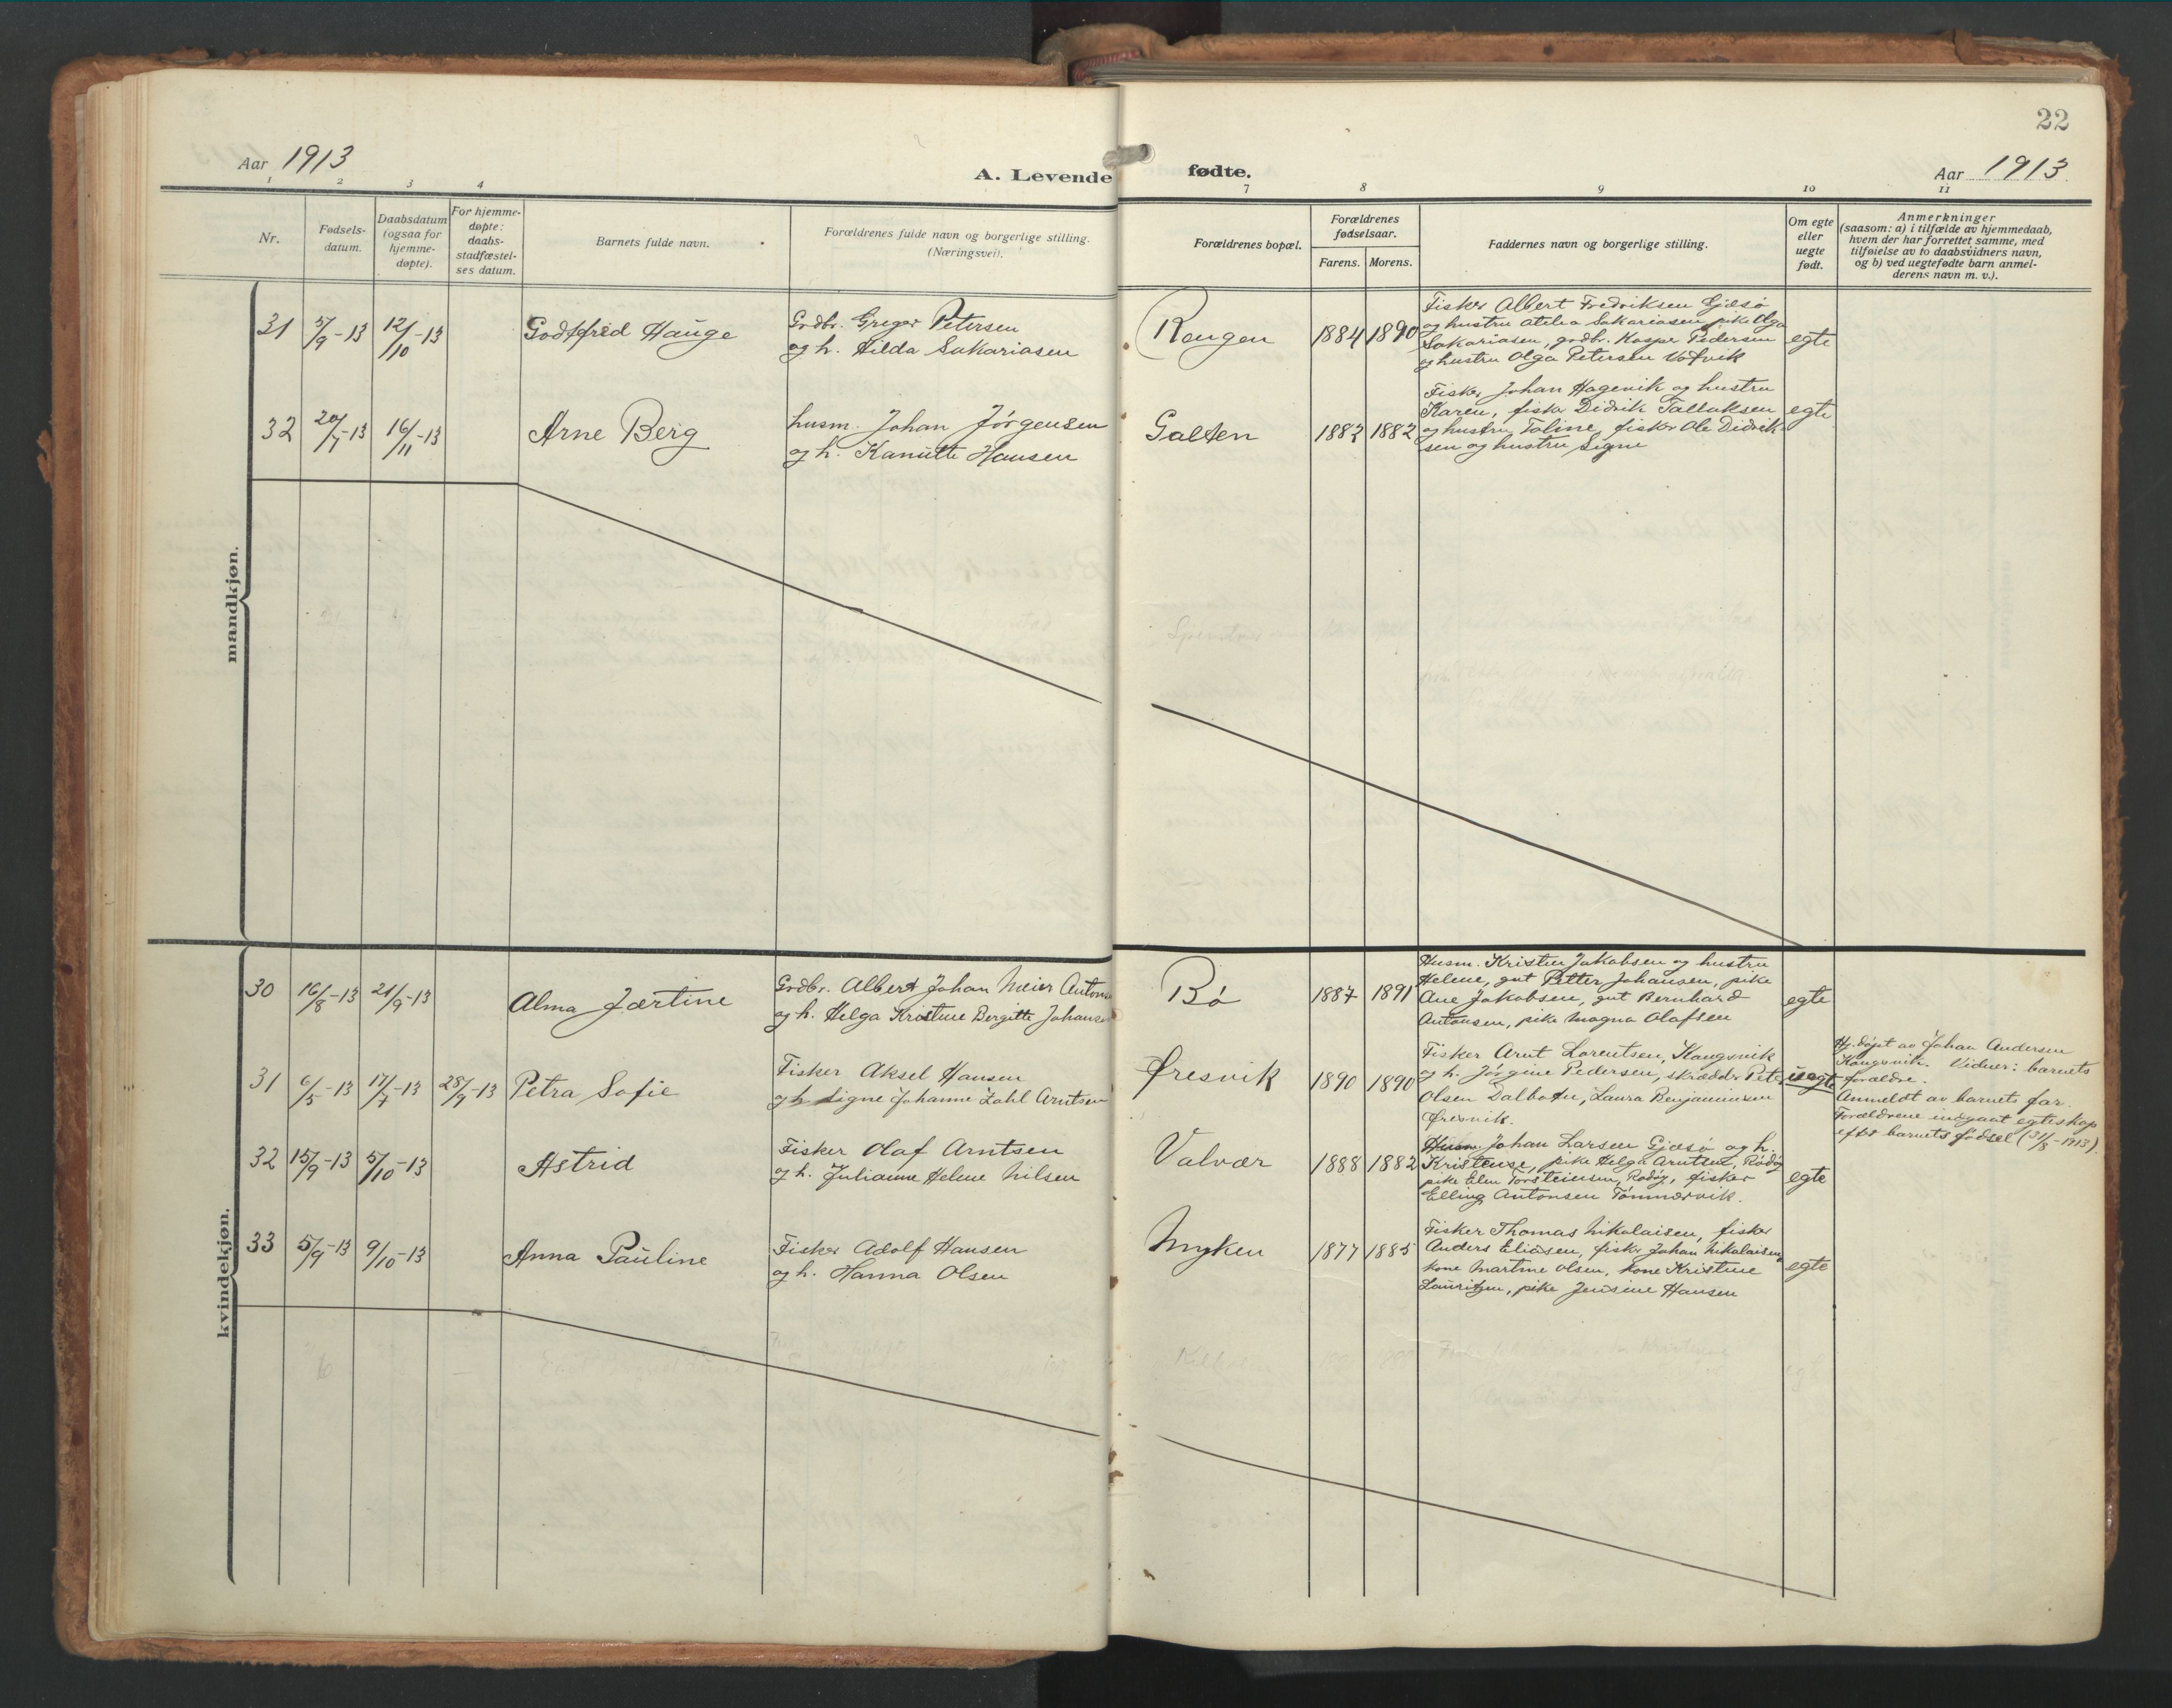 22
Aar 1913
A. Levende fødte.
Aar 1913
1 2 3 4 7 8 9 10 11
Nr.
Fødsels-
datum.
Daabsdatum
(ogsaa for
hjemme-
døpte).
For hjemme-
døpte:
daabs-
stadfæstel-
ses datum.
Barnets fulde navn.
Forældrenes fulde navn og borgerlige stilling.
(Næringsvei).
Forældrenes bopæl.
Forældrenes
fødselsaar.
Farens. Morens.
Faddernes navn og borgerlige stilling.
Om egte
eller
uegte
født.
Anmerkninger
(saasom: a) i tilfælde av hjemmedaab,
hvem der har forrettet samme, med
tilføielse av to daabsvidners navn,
og b) ved uegtefødte barn anmel-
derens navn m. v.).
mandkjøn.
31 5/9-13 12/10-13 Godtfred Hauge
Grdbr. Greger Petersen
og h. Hilda Sakariasen
Rengen 1884 1890
Fisker Albert Fredriksen Gjæsø
og hustru Otelia Sakariasen, pike Olga
Sakariasen, grdbr. Kasper Pedersen
og hustru Olga Petersen
egte
32 20/7-13 16/11-13 Arne Berg
husm. Johan Jørgensen
og h. Kanutte Hansen
Galten 1883 1882
Fisker Johan Hagenik og hustru
Karen, fisker Didrik Tallaksen
og hustru Toline, fisker Ole Didrik-
sen og hustru Signe
egte
kvindekjøn.
30 16/8-13 21/9-13 Alma Jærtine
Grdbr. Albert Johan Meier Antons
og h. Helga Kristine Bergitte Johansen
Bø 1887 1891
Husm. Kristen Jakobsen og hustru
Helene, gut Petter Johansen, pike
Ane Jakobsen, gut Bernhard
Antonsen, pike Magna Olafsen
egte
31 6/5-13 17/7-13 28/9-13 Petra Sofie
Fisker Aksel Hansen
og h. Signe Johanne Zahl Arntsen
Øresvik 1890 1890
Fisker Arnt Lorentsen, Kangsvik
og h. Jørgine Pedersen, skrædder Peter
Olsen Dalbotn, Laura Benjaminsen
Øresvik.
uegte
Hj.døpt av Johan Andersen
Kangsvik. Vidner: barnets
forældre.
Anmeldt av barnets far.
Forældrene indgaat egteskap
efter barnets fødsel (31/8-1913).
32 15/9-13 5/10-13 Astrid
Fisker Olaf Arntsen
og h. Julianne Helene Nilsen
Valvær 1888 1882
Husm. Johan Larsen Gjæsø og h.
Kristense, pike Helga Arntsen, Rødøy
pike Elen Torsteinsen, Rødøy, fisker
Elling Antonsen Tømmervik.
egte
33 5/9-13 9/10-13 Anna Pauline
Fisker Adolf Hansen
og h. Hanna Olsen
Myken 1877 1885
Fisker Thomas Nikolaisen, fisker
Anders Eliasen, fisker Johan Nikolaisen,
kone Martine Olsen, kone Kristine
Lauritzen, pike Jensine Hansen
egte